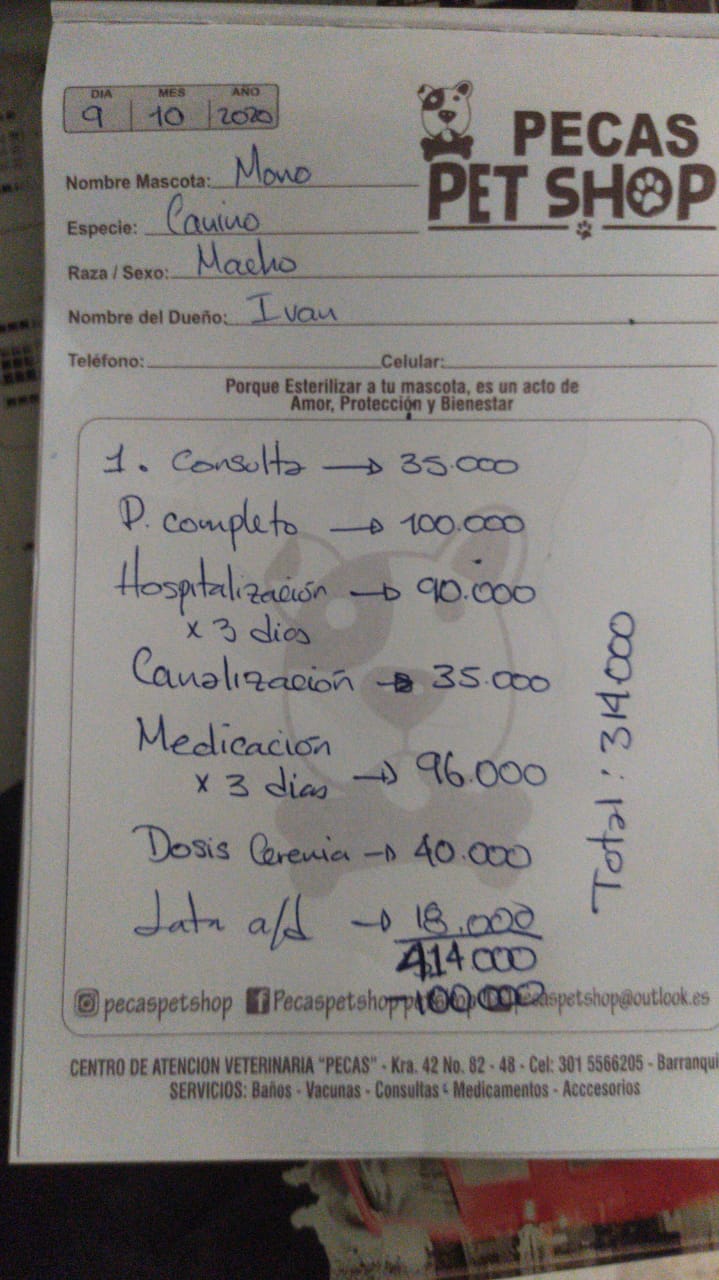 DIA MES AÑO
9 10 2020
PECAS
PET SHOP
Nombre Mascota: Mono
Especie: Canino
Raza / Sexo: Macho
Nombre del Dueño: Ivan
Teléfono: Celular:
Porque Esterilizar a tu mascota, es un acto de
Amor, Protección y Bienestar
1. Consulta → 35.000
P. completo → 100.000
Hospitalización → 90.000
x 3 dias
Canalización → 35.000
Medicación
x 3 dias → 96.000
Dosis Cerenia → 40.000
Lata a/d → 18.000
414000
-100000
Total: 314000
pecaspetshop Pecaspetshop pecaspetshop@outlook.es
CENTRO DE ATENCION VETERINARIA "PECAS" - Kra. 42 No. 82 - 48 - Cel: 301 5566205 - Barranqui
SERVICIOS: Baños - Vacunas - Consultas - Medicamentos - Acccesorios